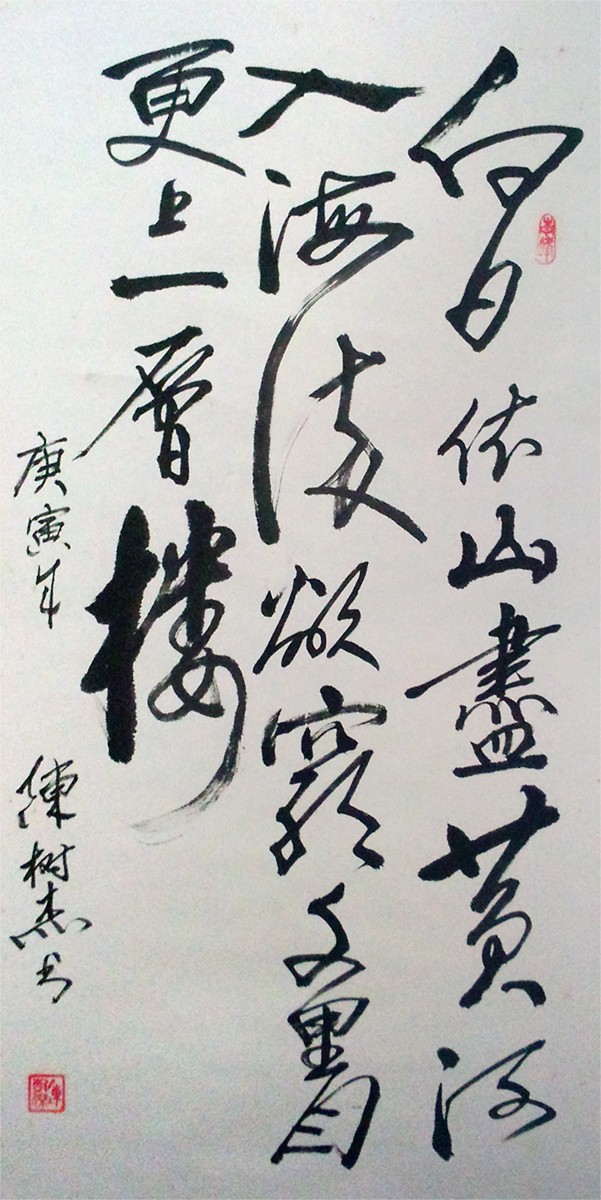 白日依山盡黃河
入海流欲窮千里目
更上一層樓
庚寅年 陳树杰书